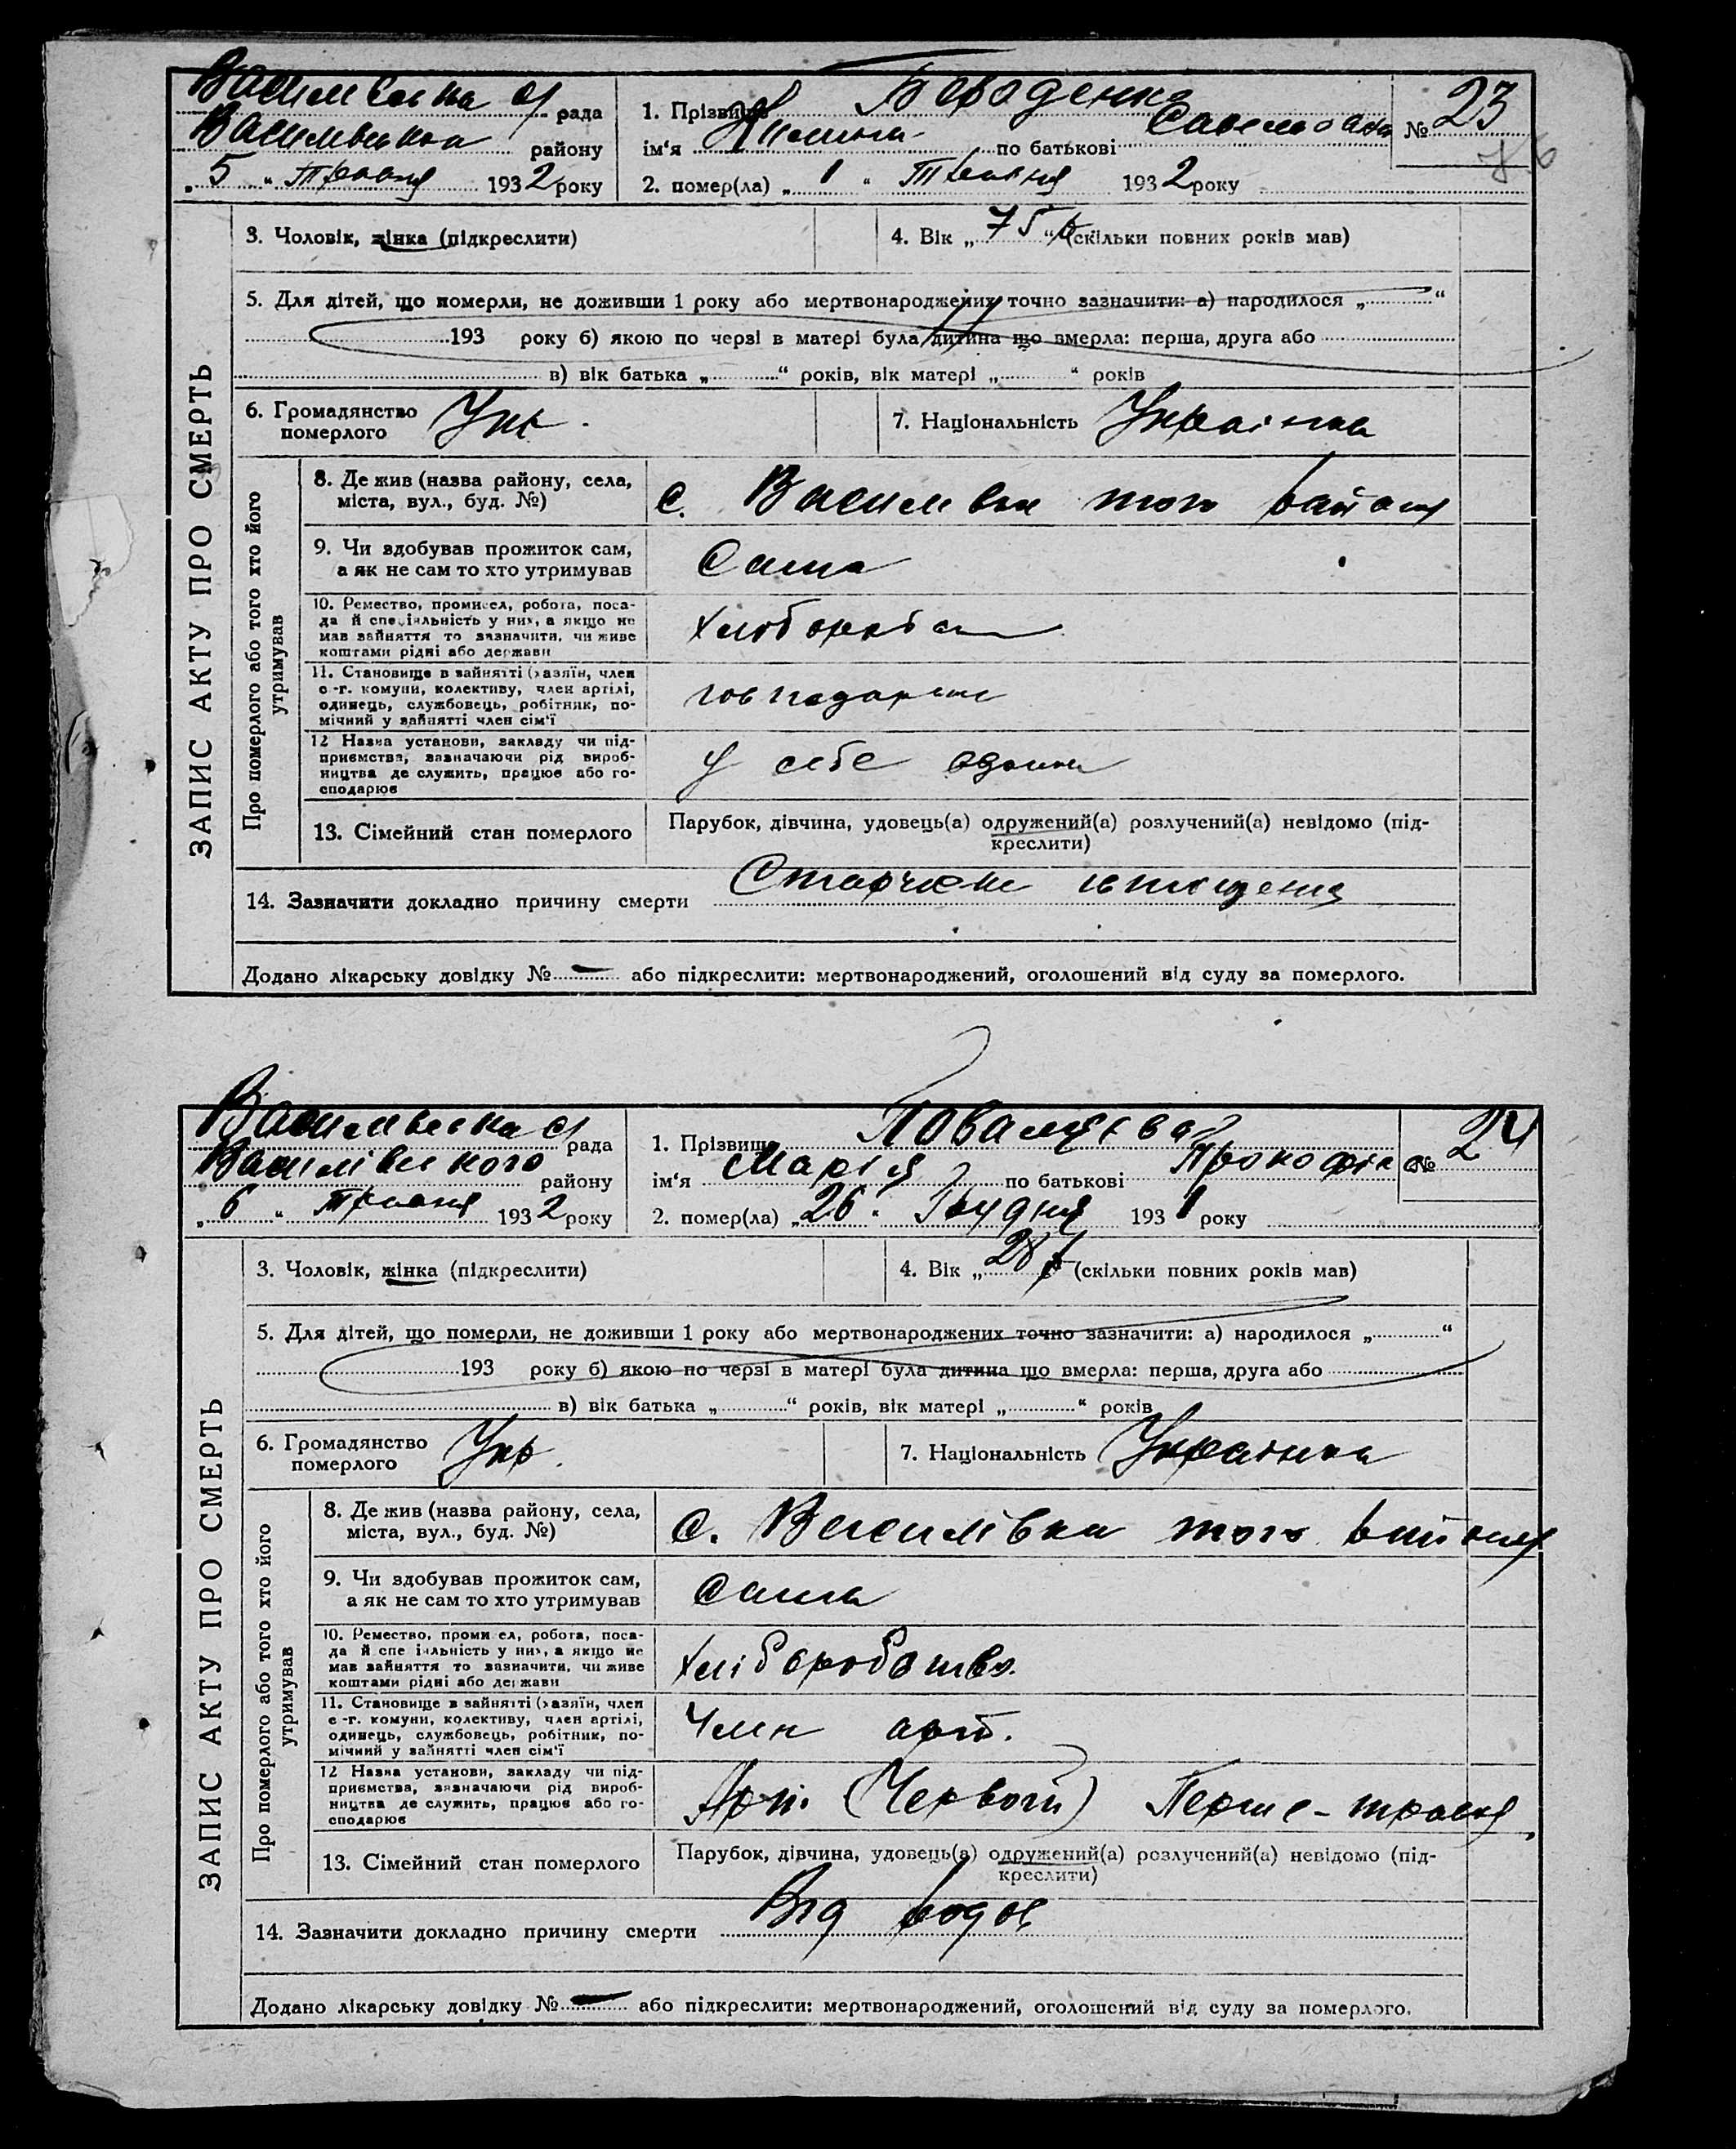 Василівська с/рада
Васильвська району
„5“ Травня 1932 року
1. Прізвище Бероденко
ім‘я по батькові Савельовна
2. помер(ла) „1“ Травня 1932 року
№ 23
ЗАПИС АКТУ ПРО СМЕРТЬ
3. Чоловік, жінка (підкреслити)
4. Вік „75“ (скільки повних років мав)
5. Для дітей, що померли, не доживши 1 року або мертвонароджених точно зазначити: а) народилося „ “
193 року б) якою по черзі в матері була дитина що вмерла: перша, друга або
в) вік батька „ “ років, вік матері „ “ років
6. Громадянство
померлого Укр.
7. Національність Українка
Про померлого або того хто його
утримував
8. Де жив (назва району, села,
міста, вул., буд. №)
с. Василівка того району
9. Чи здобував прожиток сам,
а як не сам то хто утримував
Сама
10. Ремество, промисел, робота, поса-
да й спеціяльність у них, а якщо не
мав зайняття то зазначити, чи живе
коштами рідні або держави
11. Становище в зайнятті (хазяїн, член
с.-г. комуни, колективу, член артілі,
одинець, службовець, робітник, по-
мічний у зайнятті член сім‘ї
12 Назва установи, закладу чи під-
приємства, зазначаючи рід вироб-
ництва де служить, працює або го-
сподарює
у себе вдома
13. Сімейний стан померлого
Парубок, дівчина, удовець(а) одружений(а) розлучений(а) невідомо (під-
креслити)
14. Зазначити докладно причину смерти Старческе істощение
Додано лікарську довідку № — або підкреслити: мертвонароджений, оголошений від суду за померлого.
Васильвська с/рада
Василівського району
„6“ Травня 1932 року
1. Прізвище Поваляєва
ім‘я Марія по батькові Прокофіє
2. помер(ла) „26“ Грудня 1931 року
№ 24
ЗАПИС АКТУ ПРО СМЕРТЬ
3. Чоловік, жінка (підкреслити)
4. Вік „28 (скільки повних років мав)
5. Для дітей, що померли, не доживши 1 року або мертвонароджених точно зазначити: а) народилося „ “
193 року б) якою по черзі в матері була дитина що вмерла: перша, друга або
в) вік батька „ “ років, вік матері „ “ років
6. Громадянство
померлого Укр.
7. Національність Українка
Про померлого або того хто його
утримував
8. Де жив (назва району, села,
міста, вул., буд. №)
с. Василівка того району
9. Чи здобував прожиток сам,
а як не сам то хто утримував
сама
10. Ремество, промисел, робота, поса-
да й спеціяльність у них, а якщо не
мав зайняття то зазначити, чи живе
коштами рідні або держави
хліборобство.
11. Становище в зайнятті (хазяїн, член
с.-г. комуни, колективу, член артілі,
одинець, службовець, робітник, по-
мічний у зайнятті член сім‘ї
Член арт.
12 Назва установи, закладу чи під-
приємства, зазначаючи рід вироб-
ництва де служить, працює або го-
сподарює
Арт. Перше-травня
13. Сімейний стан померлого
Парубок, дівчина, удовець(а) одружений(а) розлучений(а) невідомо (під-
креслити)
14. Зазначити докладно причину смерти Від родов
Додано лікарську довідку № — або підкреслити: мертвонароджений, оголошений від суду за померлого.